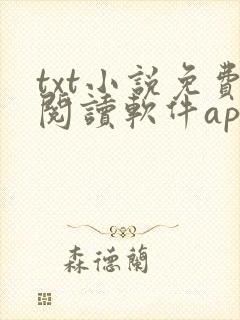 txt小說免費
閱讀軟件ap
森德蘭